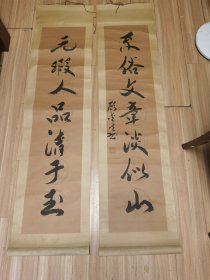 不俗文章淡似山
无瑕人品清于玉